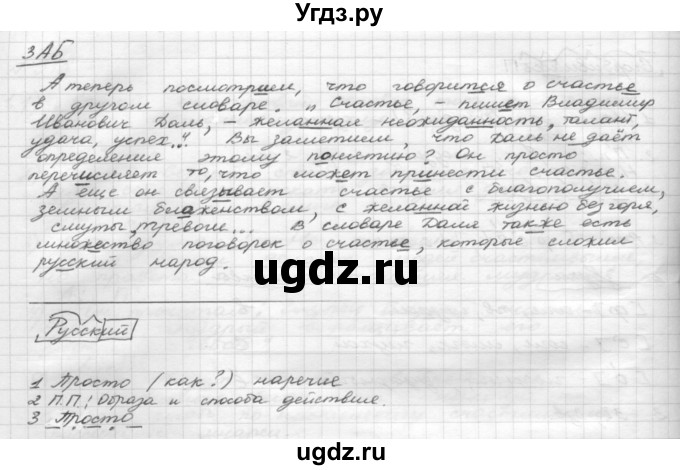 Угdz.ру
3АБ
А теперь посмотрим, что говорится о счастье
в другом словаре. „Счастье, – пишет Владимир
Иванович Даль, – желанная неожиданность, талант,
удача, успех..." Вы заметили, что Даль не даёт
определения этому понятию? Он просто
перечисляет то, что может принести счастье.
А еще он связывает счастье с благополучием,
земным блаженством, с желанной жизнью без горя,
смуты, тревоги... В словаре Даля также есть
множество поговорок о счастье, которые сложил
русский народ.
ugdz.ru
Русский
1 Просто (как?) наречие
2 П.П: Образа и способа действия.
3 Просто
ugdz.ru
ugdz.ru